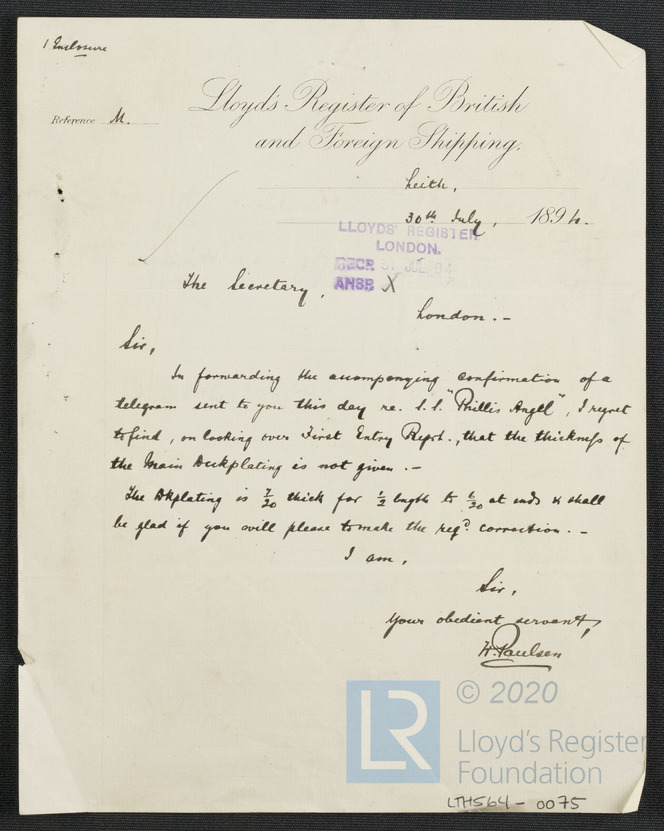 1 Enclosure
Lloyd's Register of British
and Foreign Shipping.
Reference M.
Leith,
30th July, 1894.
LLOYDS' REGISTER
LONDON.
RECD 31 JUL 94
ANSD X
The Secretary,
London.-
Sir,
In forwarding the accompanying confirmation of a
telegram sent to you this day re. S.S. "Phillis Angel", I regret
to find, on looking over First Entry Report., that the thickness of
the Main Deckplating is not given.-
The Dkplating is 7/20 thick for 1/2 length to 6/20 at ends & shall
be glad if you will please to make the reqd. correction.-
I am,
Sir,
Your obedient servant,
H. Paulsen
© 2020
LR
Lloyd's Register
Foundation
LTH564-0075